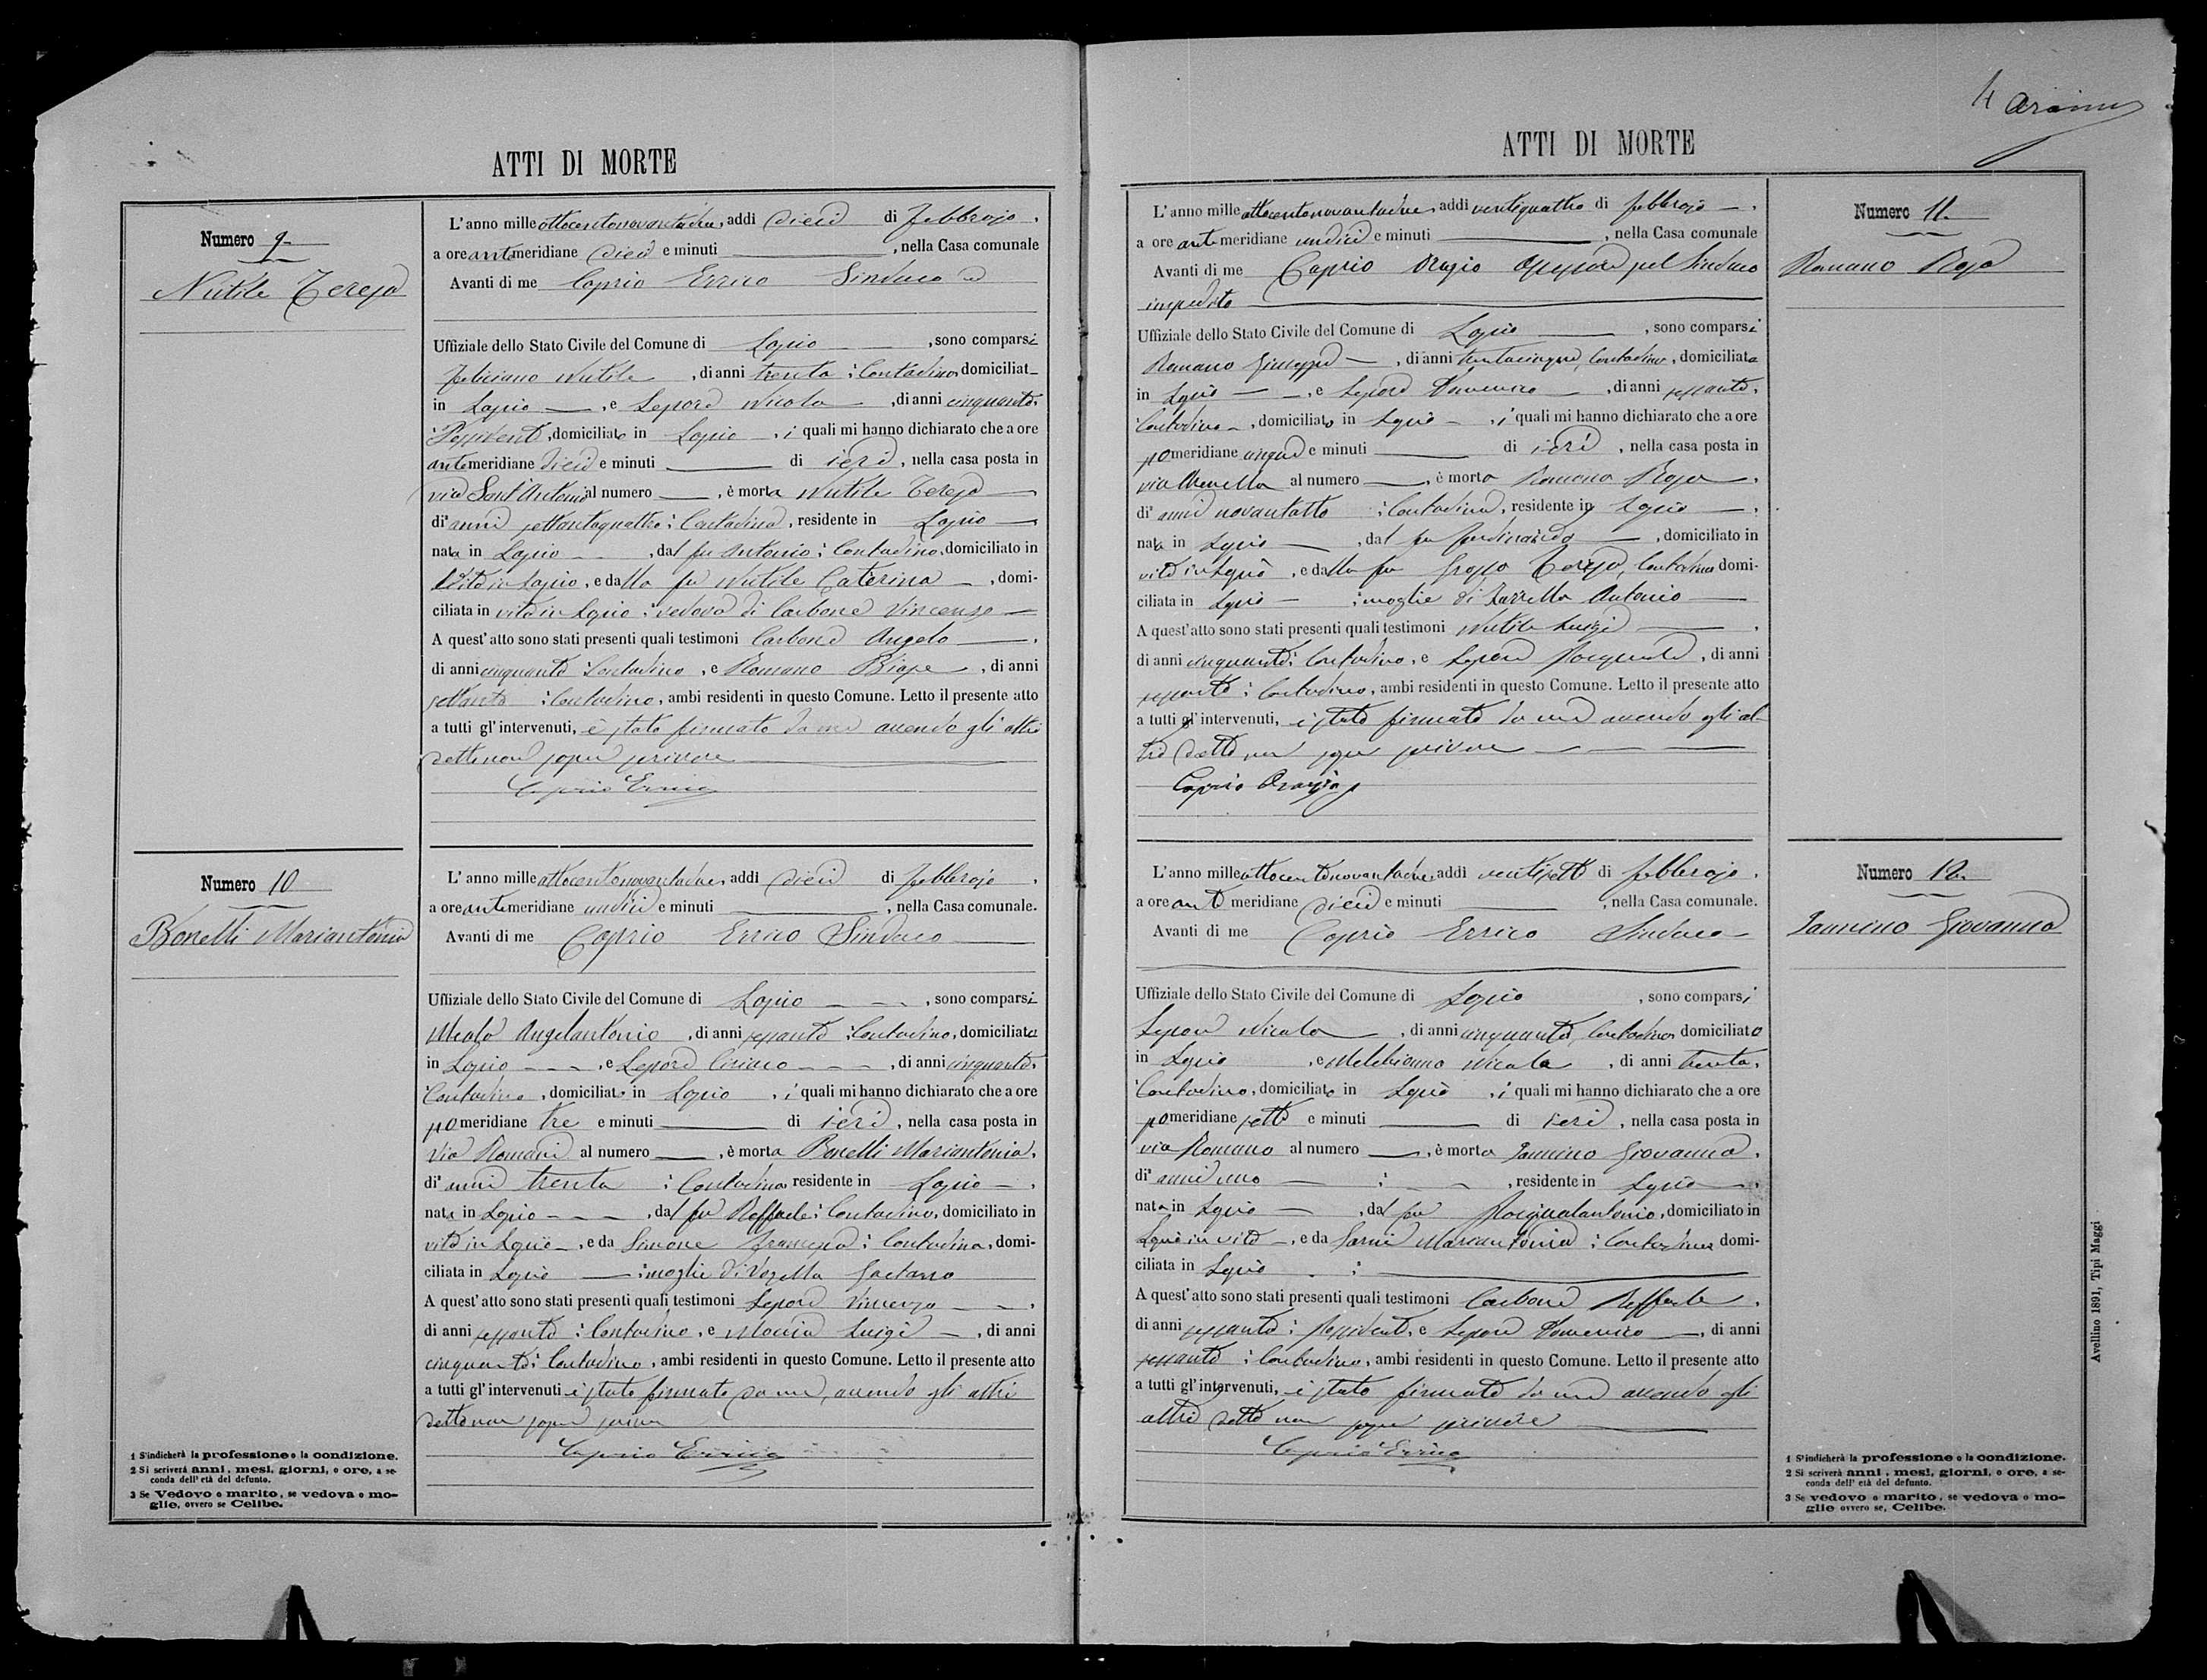 ATTI DI MORTE
Numero 9
Nutile Teresa
L'anno mille ottocentonovantadue, addì dieci di Febbrajo,
a ore antimeridiane dieci e minuti, nella Casa comunale
Avanti di me Caprio Errico Sindaco
Uffiziale dello Stato Civile del Comune di Lapio, sono comparsi
Feliciano Nutile, di anni trenta Contadino domiciliat
in Lapio, e Lepore Nicola, di anni cinquanta,
Possidente, domiciliato in Lapio, i quali mi hanno dichiarato che a ore
antimeridiane dieci e minuti di ieri, nella casa posta in
via Sant'Antonio al numero, è morta Nutile Teresa
di anni settantaquattro Contadina, residente in Lapio
nata in Lapio, dal fu Antonio Contadino, domiciliato in
vita in Lapio, e dalla fu Nutile Caterina, domi-
ciliata in vita in Lapio vedova di Carbone Vincenzo
A quest'atto sono stati presenti quali testimoni Carbone Angelo,
di anni cinquanta Contadino, e Romano Biase, di anni
settanta Contadino, ambi residenti in questo Comune. Letto il presente atto
a tutti gl'intervenuti, è stato firmato da me avendo gli altri
detto non saper scrivere
Caprio Errico
Numero 10
Bonelli Mariantonia
L'anno mille ottocentonovantadue, addì dieci di Febbrajo,
a ore antimeridiane undici e minuti, nella Casa comunale.
Avanti di me Caprio Errico Sindaco
Uffiziale dello Stato Civile del Comune di Lapio, sono comparsi
Angelantonio, di anni sessanta Contadino, domiciliato
in Lapio, e Lepore Ciriaco, di anni cinquanta,
Contadino, domiciliato in Lapio, i quali mi hanno dichiarato che a ore
pomeridiane tre e minuti di ieri, nella casa posta in
Via Romano al numero, è morta Bonelli Mariantonia,
di anni trenta Contadina residente in Lapio,
nata in Lapio, dal fu Raffaele Contadino, domiciliato in
vita in Lapio, e da Simone Francesca Contadina, domi-
ciliata in Lapio moglie di Gaetano
A quest'atto sono stati presenti quali testimoni Lepore Vincenzo,
di anni sessanta Contadino, e Moccia Luigi, di anni
cinquanta Contadino, ambi residenti in questo Comune. Letto il presente atto
a tutti gl'intervenuti è stato firmato da me, avendo gli altri
detto non saper scrivere
Caprio Errico
1 S'indicherà la professione o la condizione.
2 Si scriverà anni, mesi, giorni, o ore, a se-
conda dell'età del defunto.
3 Se Vedovo o marito, se vedova o mo-
glie, ovvero se Celibe.
4
ATTI DI MORTE
Numero 11.
Romano Rosa
L'anno mille ottocentonovantadue, addì ventiquattro di Febbrajo,
a ore antimeridiane undici e minuti, nella Casa comunale
Avanti di me Caprio Orazio Assessore pel Sindaco
impedito
Uffiziale dello Stato Civile del Comune di Lapio, sono comparsi
Romano Giuseppe, di anni trentacinque, Contadino, domiciliato
in Lapio, e Lepore Domenico, di anni sessanta,
Contadino, domiciliato in Lapio, i quali mi hanno dichiarato che a ore
pomeridiane cinque e minuti di ieri, nella casa posta in
via al numero, è morta Romano Rosa,
di anni novantotto Contadina, residente in Lapio,
nata in Lapio, dal fu Ferdinando, domiciliato in
vita in Lapio, e dalla fu Grosso Teresa, Contadina domi-
ciliata in Lapio moglie di Antonio
A quest'atto sono stati presenti quali testimoni Nutile Luigi,
di anni cinquanta Contadino, e Lepore Pasquale, di anni
sessanta Contadino, ambi residenti in questo Comune. Letto il presente atto
a tutti gl'intervenuti, è stato firmato da me avendo gli al-
tri detto non saper scrivere
Caprio Orazio
Numero 12.
Iannino Giovanna
L'anno mille ottocentonovantadue addì ventisette di Febbrajo,
a ore ante meridiane dieci e minuti, nella Casa comunale.
Avanti di me Caprio Errico Sindaco
Uffiziale dello Stato Civile del Comune di Lapio, sono comparsi
Lepore Nicola, di anni cinquanta, Contadino domiciliato
in Lapio, e Melchionno Nicola, di anni trenta,
Contadino, domiciliato in Lapio, i quali mi hanno dichiarato che a ore
pomeridiane sette e minuti di ieri, nella casa posta in
via Romano al numero, è morta Iannino Giovanna,
di anni uno, residente in Lapio,
nata in Lapio, dal fu Pasqualantonio, domiciliato in
Lapio in vita, e da Mariantonia Contadina domi-
ciliata in Lapio
A quest'atto sono stati presenti quali testimoni Carbone Raffaele,
di anni sessanta Possidente, e Lepore Domenico, di anni
sessanta Contadino, ambi residenti in questo Comune. Letto il presente atto
a tutti gl'intervenuti, è stato firmato da me avendo gli
altri detto non saper scrivere
Caprio Errico
1 S'indicherà la professione o la condizione.
2 Si scriverà anni, mesi, giorni, o ore, a se-
conda dell'età del defunto.
3 Se vedovo o marito, se vedova o mo-
glie ovvero se, Celibe.
Avellino 1891, Tipi Maggi